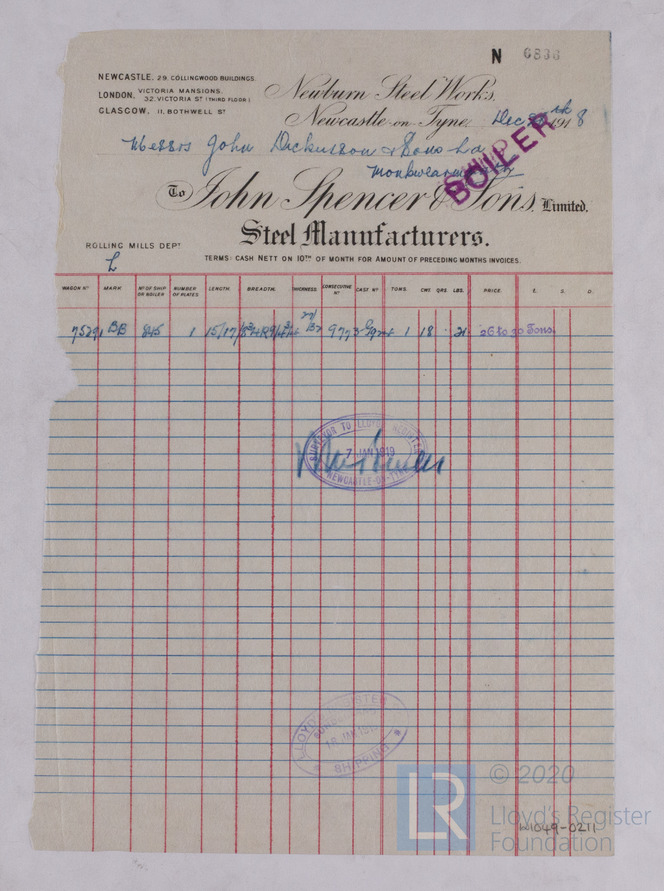 N 0836
NEWCASTLE, 29, COLLINGWOOD BUILDINGS.
LONDON, VICTORIA MANSIONS, 32, VICTORIA ST (THIRD FLOOR)
GLASGOW, 11, BOTHWELL ST
Newburn Steel Works,
Newcastle-on-Tyne, Dec th 1918
Messrs John Dickinson & Sons Ld
Monkwearmouth
BOILER
To John Spencer & Sons, Limited.
Steel Manufacturers.
ROLLING MILLS DEPT
L
TERMS: CASH NETT ON 10TH OF MONTH FOR AMOUNT OF PRECEDING MONTHS INVOICES.
WAGON NO MARK NO OF SHIP OR BOILER NUMBER OF PLATES LENGTH. BREADTH. THICKNESS CONSECUTIVE NO CAST NO TONS. CWT. QRS. LBS. PRICE. £. S. D.
75291 BB 845 1 9773 1 18 . 21 26 to 30 Tons.
SURVEYOR TO LLOYD'S REGISTER
7 JAN 1919
NEWCASTLE-ON-TYNE
LLOYD'S REGISTER
SUNDERLAND
JAN 19
SHIPPING
LR
© 2020
Lloyd's Register
Foundation
W1049-0211